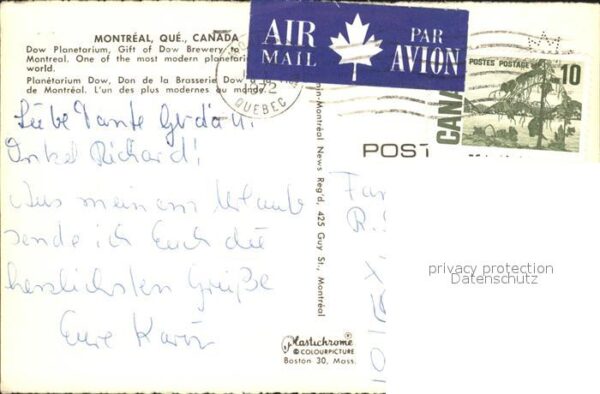 MONTRÉAL, QUÉ., CANADA
Dow Planetarium, Gift of Dow Brewery to
Montreal. One of the most modern planetari
world.
Planétarium Dow, Don de la Brasserie Dow à la Ville
de Montréal. L'un des plus modernes au monde.
AIR
MAIL
PAR
AVION
QUEBEC
POSTES POSTAGE
10
CANA
POST
Liebe Tante Gerda u.
Onkel Richard!
Aus meinem Urlaub
sende ich Euch die
herzlichsten Grüße
Eure Karin
min-Montréal News Reg'd, 425 Guy St., Montréal
Fam
R.
privacy protection
Datenschutz
Plastichrome ®
© COLOURPICTURE
Boston 30, Mass.